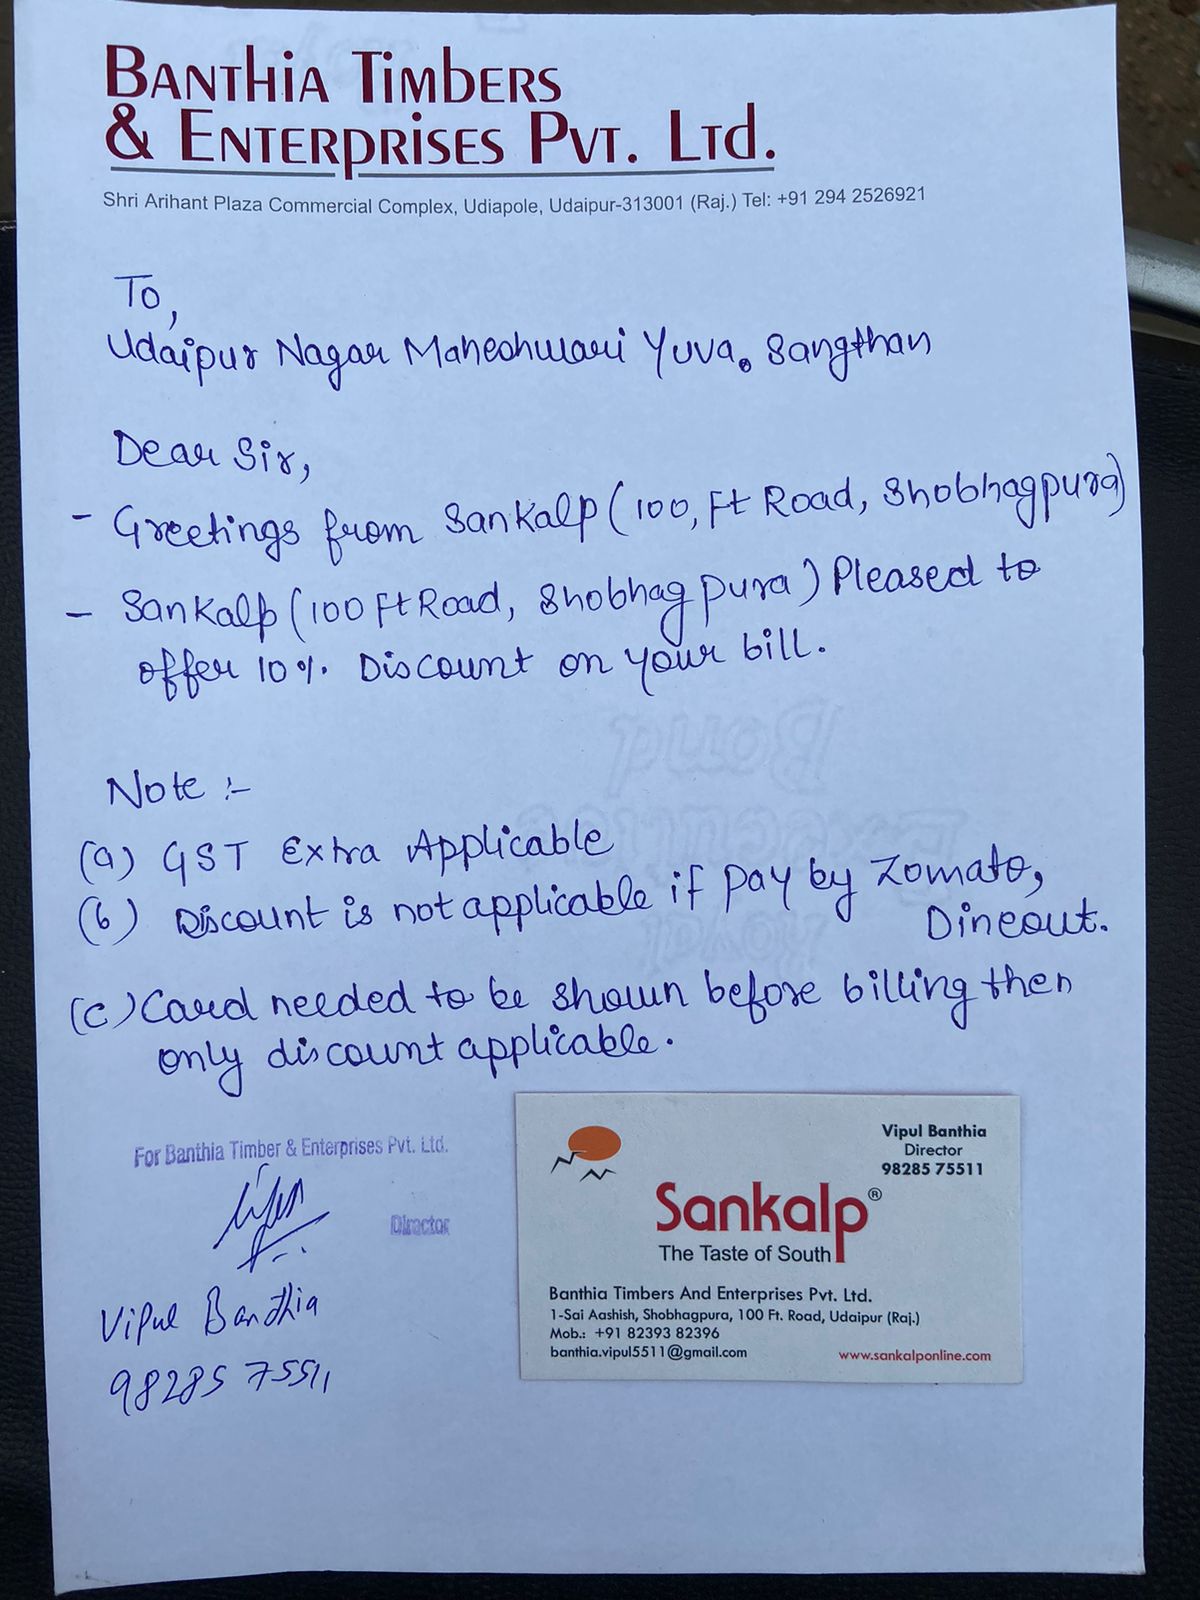 BANTHIA TIMBERS
& ENTERPRISES PVT. LTD.
Shri Arihant Plaza Commercial Complex, Udiapole, Udaipur-313001 (Raj.) Tel: +91 294 2526921
To,
Udaipur Nagar Maheshwari Yuva. Sangthan
Dear Sir,
- Greetings from Sankalp (100, Ft Road, Shobhagpura)
- Sankalp (100 Ft Road, Shobhagpura) Pleased to
offer 10% Discount on your bill.
Note :-
(a) GST Extra Applicable
(b) Discount is not applicable if pay by Zomato,
Dineout.
(c) Card needed to be shown before billing then
only discount applicable.
For Banthia Timber & Enterprises Pvt. Ltd.
Director
Vipul Banthia
98285 75511
Vipul Banthia
Director
98285 75511
Sankalp®
The Taste of South
Banthia Timbers And Enterprises Pvt. Ltd.
1-Sai Aashish, Shobhagpura, 100 Ft. Road, Udaipur (Raj.)
Mob.: +91 82393 82396
banthia.vipul5511@gmail.com www.sankalponline.com